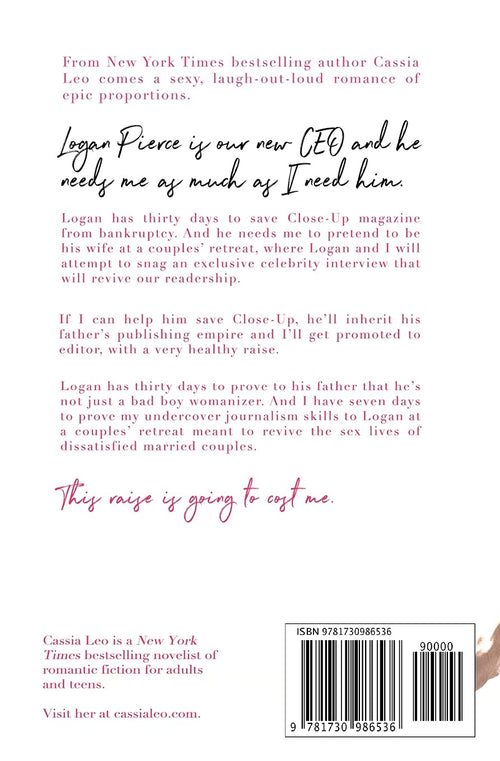 From New York Times bestselling author Cassia
Leo comes a sexy, laugh-out-loud romance of
epic proportions.
Logan Pierce is our new CEO and he
needs me as much as I need him.
Logan has thirty days to save Close-Up magazine
from bankruptcy. And he needs me to pretend to be
his wife at a couples' retreat, where Logan and I will
attempt to snag an exclusive celebrity interview that
will revive our readership.
If I can help him save Close-Up, he'll inherit his
father's publishing empire and I'll get promoted to
editor, with a very healthy raise.
Logan has thirty days to prove to his father that he's
not just a bad boy womanizer. And I have seven days
to prove my undercover journalism skills to Logan at
a couples' retreat meant to revive the sex lives of
dissatisfied married couples.
This raise is going to cost me.
Cassia Leo is a New York
Times bestselling novelist of
romantic fiction for adults
and teens.
Visit her at cassialeo.com.
ISBN 9781730986536
90000
9 781730 986536